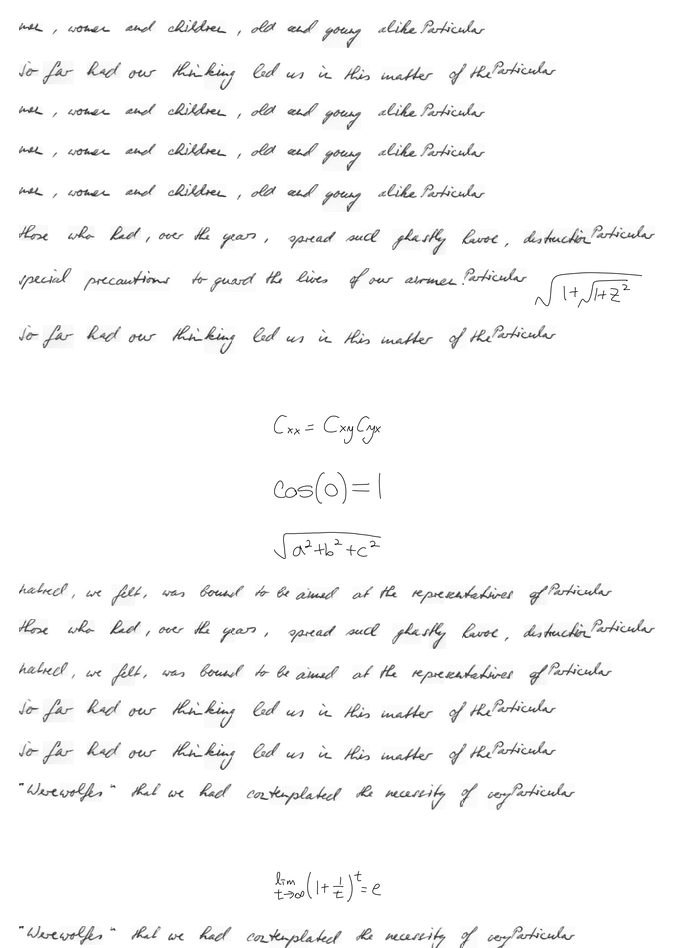 men, women and children, old and young alike Particular
So far had our thinking led us in this matter of the Particular
men, women and children, old and young alike Particular
men, women and children, old and young alike Particular
men, women and children, old and young alike Particular
those who had, over the years, spread such ghastly havoc, destruction Particular
special precautions to guard the lives of our airmen. Particular \sqrt{1+\sqrt{1+z^2}}
So far had our thinking led us in this matter of the Particular
C_{xx} = C_{xy} C_{yx}
cos(0) = 1
\sqrt{a^2+b^2+c^2}
hatred, we felt, was bound to be aimed at the representatives of Particular
those who had, over the years, spread such ghastly havoc, destruction Particular
hatred, we felt, was bound to be aimed at the representatives of Particular
So far had our thinking led us in this matter of the Particular
So far had our thinking led us in this matter of the Particular
"Werewolfes" that we had contemplated the necessity of very Particular
\lim_{t \to \infty} (1+\frac{1}{t})^t = e
"Werewolfes" that we had contemplated the necessity of very Particular